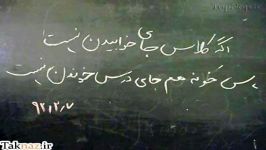 اگر کلاس جای خوابیدن نیست!
پس خونه هم جای درس خوندن نیست
۹۲،۲،۷
Taknaz.ir